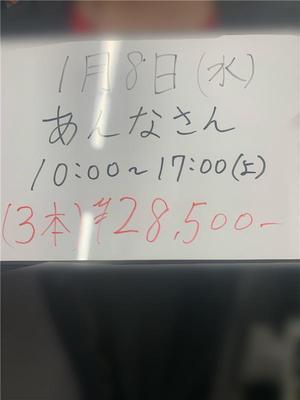 1月8日(水)
あんなさん
10:00~17:00(上)
(3本)¥28,500-